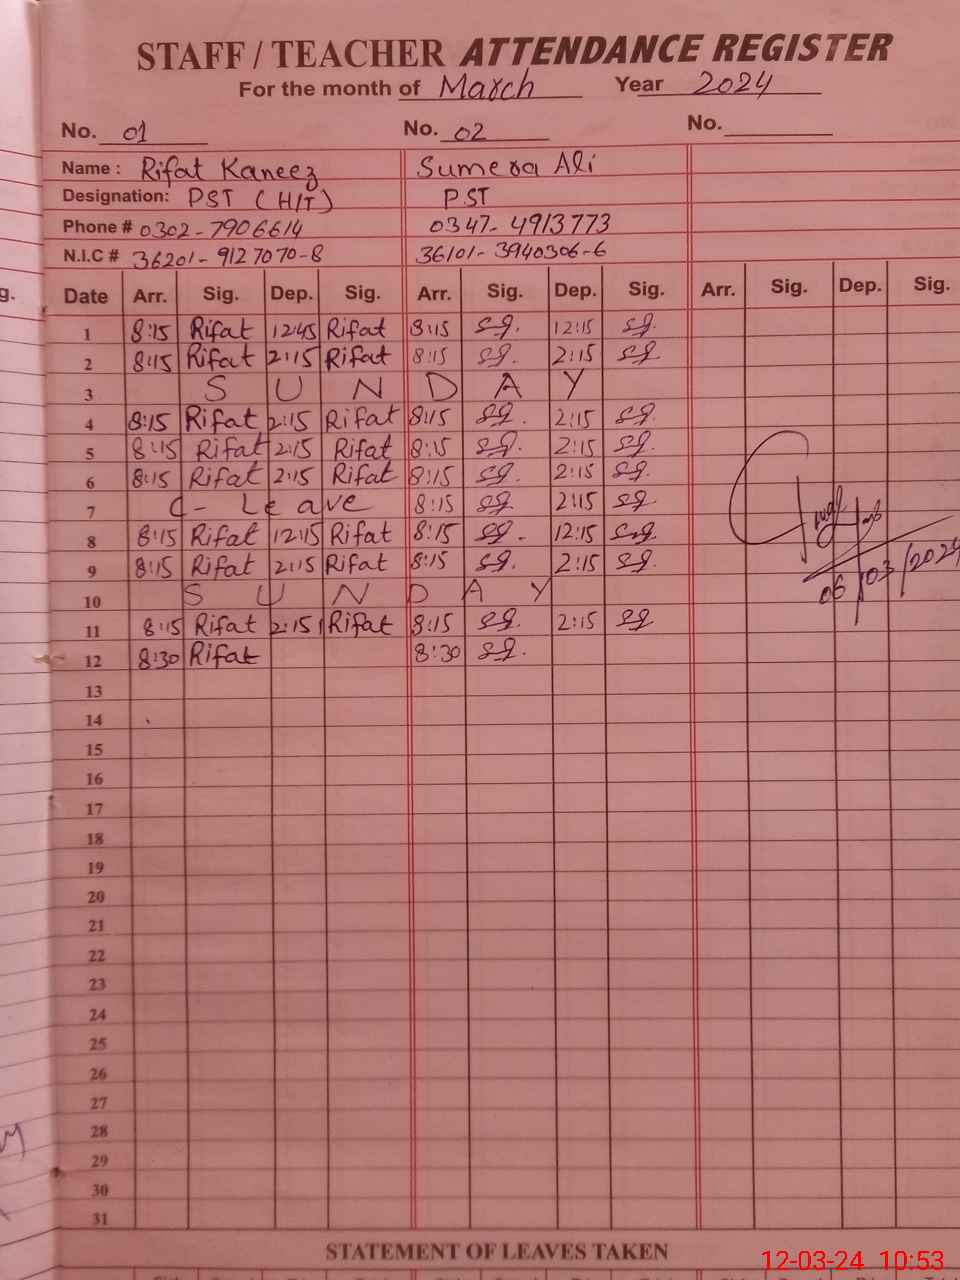 STAFF / TEACHER ATTENDANCE REGISTER
For the month of March Year 2024
No. 01 No. 02 No.
Name : Rifat Kaneez Sumera Ali
Designation: PST (H/T) P.ST
Phone # 0302-7906614 0347-4913773
N.I.C # 36201-9127070-8 36101-3940306-6
g. Date Arr. Sig. Dep. Sig. Arr. Sig. Dep. Sig. Arr. Sig. Dep. Sig.
1 8:15 Rifat 12:45 Rifat 8:15 12:15
2 8:15 Rifat 2:15 Rifat 8:15 2:15
3 S U N D A Y
4 8:15 Rifat 2:15 Rifat 8:15 2:15
5 8:15 Rifat 2:15 Rifat 8:15 2:15
6 8:15 Rifat 2:15 Rifat 8:15 2:15
7 C- Leave 8:15 2:15
8 8:15 Rifat 12:15 Rifat 8:15 12:15
9 8:15 Rifat 2:15 Rifat 8:15 2:15
06/03/2024
10 S U N D A Y
11 8:15 Rifat 2:15 Rifat 8:15 2:15
12 8:30 Rifat 8:30
13
14
15
16
17
18
19
20
21
22
23
24
25
26
27
28
29
30
31
STATEMENT OF LEAVES TAKEN
12-03-24 10:53